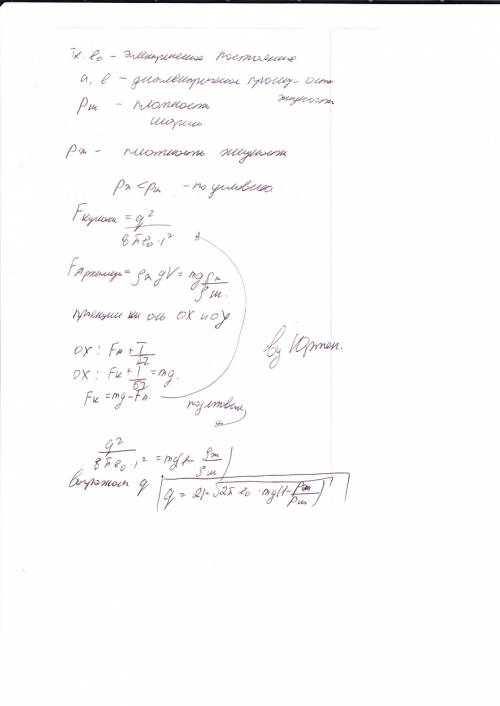 Т.к. e₀ – электрическая постоянная
a, e – диэлектрическая прониц-ость
жидкости
ρш – плотность
шарика
ρж – плотность жидкости
ρж < ρш – по условию
Fкулона = q² / 8πe₀·l²
Fархимеда = ρж gV = mg ρж/ρш.
проекции на ось OX и OY
OX: Fк + T/√2
OX: Fк + T/√2 = mg.
Fк = mg – Fа.
by Юртен.
подставим
q² / 8πe₀·l² = mg(1 – ρж/ρш)
выражаем q
q = 2l·√2πe₀·mg(1 – ρж/ρш)